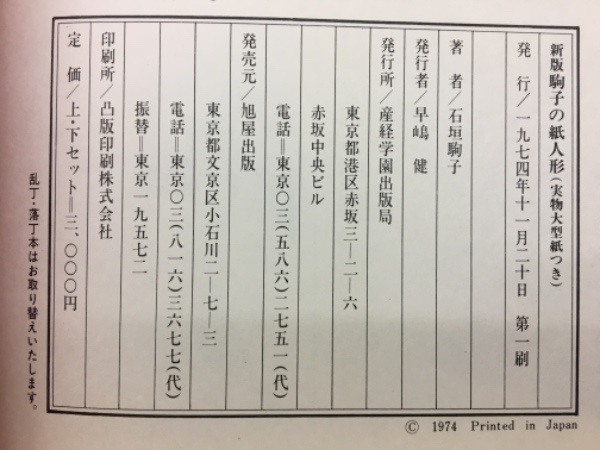 新版駒子の紙人形(実物大型紙つき)
発　行/一九七四年十一月二十日　第一刷
著　者/石垣駒子
発行者/早嶋　健
発行所/産経学園出版局
東京都港区赤坂三―二―六
赤坂中央ビル
電話＝東京〇三(五八六)二七五一(代)
発売元/旭屋出版
東京都文京区小石川二―七―三
電話＝東京〇三(八一六)三六七七(代)
振替＝東京一九五七二
印刷所/凸版印刷株式会社
定　価/上・下セット＝三、〇〇〇円
乱丁・落丁本はお取り替えいたします。
© 1974 Printed in Japan